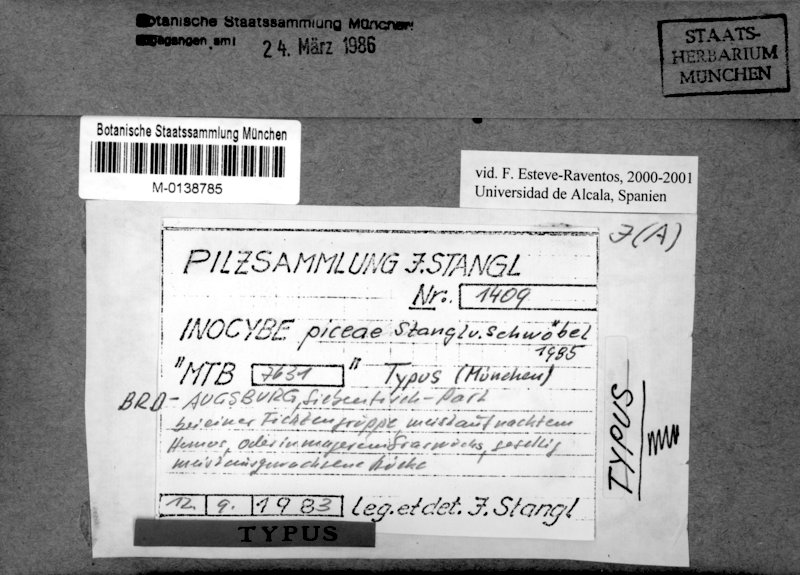 Botanische Staatssammlung München
Eingegangen am:
24. März 1986
STAATS-
HERBARIUM
MÜNCHEN
Botanische Staatssammlung München
M-0138785
vid. F. Esteve-Raventos, 2000-2001
Universidad de Alcala, Spanien
J(A)
PILZSAMMLUNG J. STANGL
Nr. 1409
INOCYBE piceae Stangl u. Schwöbel
1985
"MTB 7631" Typus (München)
BRD - AUGSBURG, Siebentisch-Park
bei einer Fichtengruppe, meist auf nacktem
Humus, oder in magerem Graswuchs, gesellig
meist ausgewachsene Stücke
12. 9. 1983 leg. et det. J. Stangl
TYPUS
TYPUS